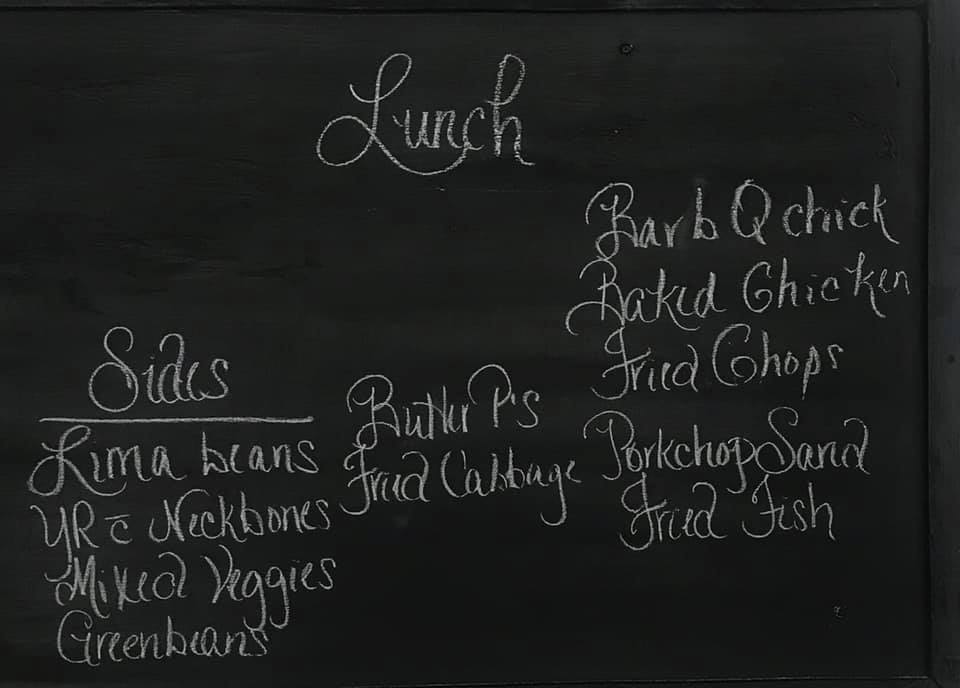 Lunch
Barb Q chick
Baked Chicken
Fried Chops
Porkchop Sand
Fried Fish
Sides
Lima beans
YR c̄ Neckbones
Mixed Veggies
Greenbeans
Butter P's
Fried Cabbage